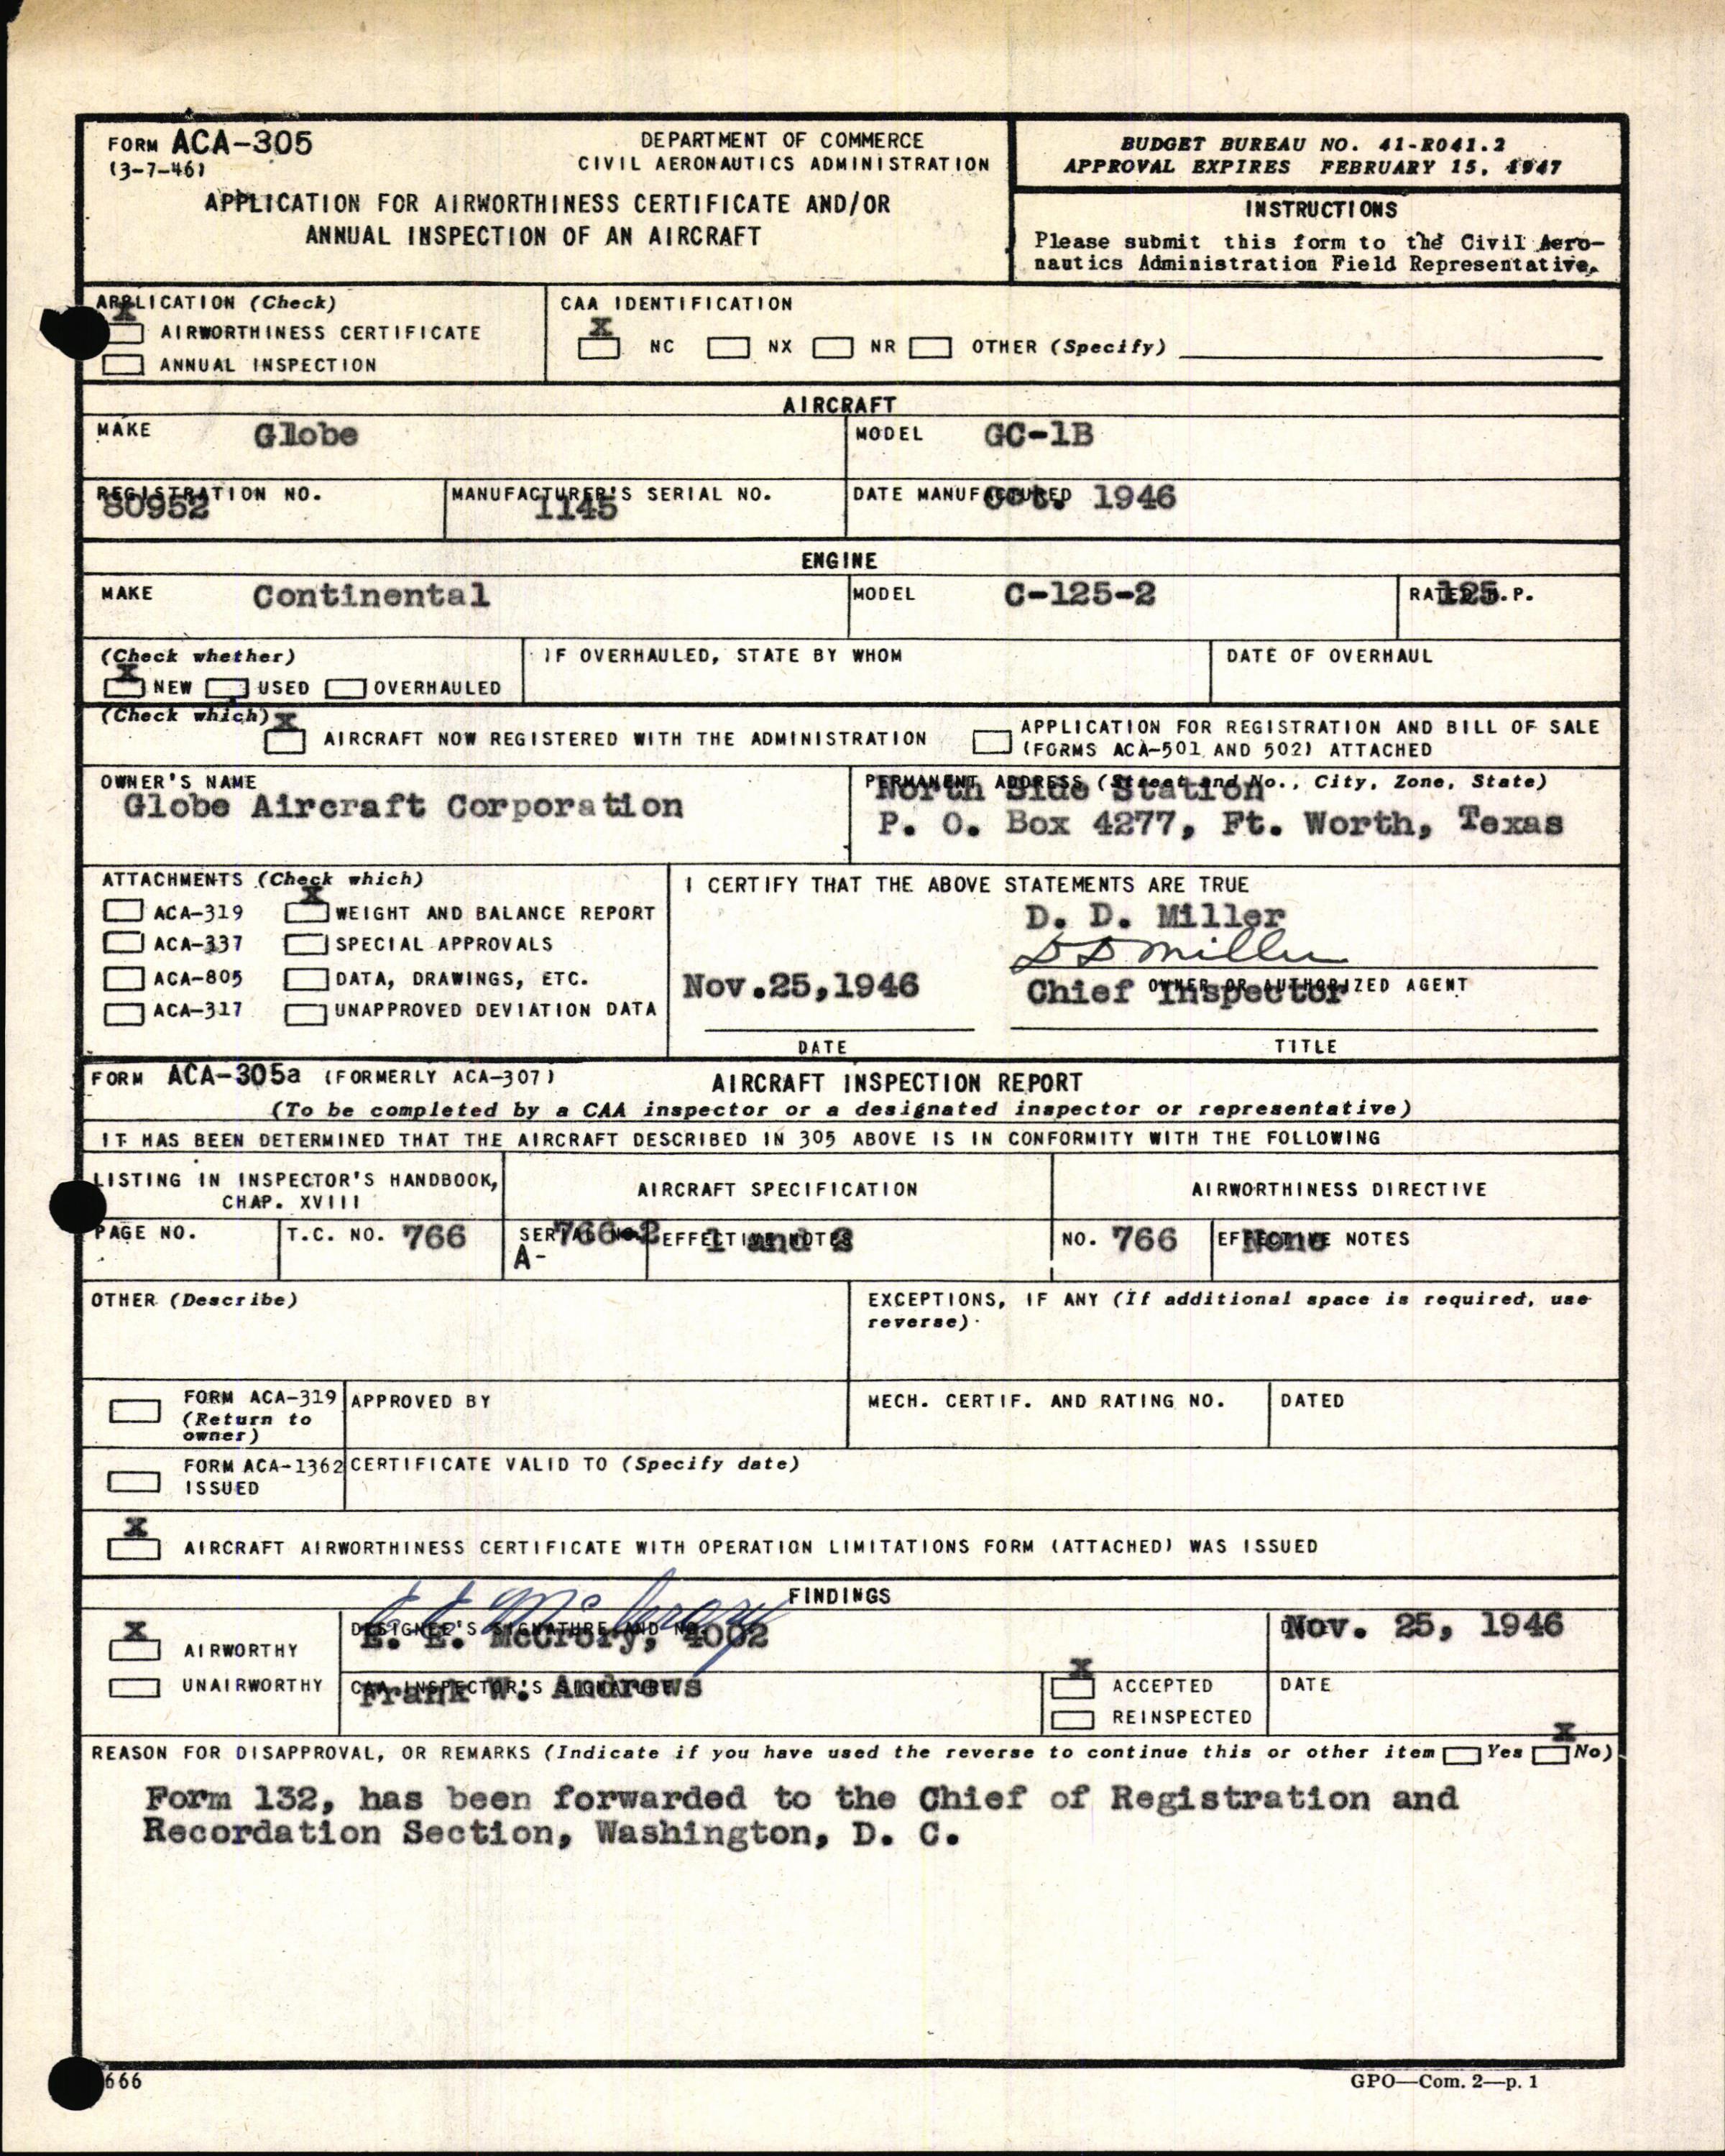 FORM ACA-305
(3-7-46)
DEPARTMENT OF COMMERCE
CIVIL AERONAUTICS ADMINISTRATION
APPLICATION FOR AIRWORTHINESS CERTIFICATE AND/OR
ANNUAL INSPECTION OF AN AIRCRAFT
BUDGET BUREAU NO. 41-R041.2
APPROVAL EXPIRES FEBRUARY 15, 1947
INSTRUCTIONS
Please submit this form to the Civil Aero-
nautics Administration Field Representative.
APPLICATION (Check)
X AIRWORTHINESS CERTIFICATE
ANNUAL INSPECTION
CAA IDENTIFICATION
X NC NX NR OTHER (Specify)
AIRCRAFT
MAKE Globe
MODEL GC-1B
REGISTRATION NO. 80952
MANUFACTURER'S SERIAL NO. 1145
DATE MANUFACTURED Oct. 1946
ENGINE
MAKE Continental
MODEL C-125-2
RATED H.P. 125
(Check whether)
X NEW USED OVERHAULED
IF OVERHAULED, STATE BY WHOM
DATE OF OVERHAUL
(Check which)
X AIRCRAFT NOW REGISTERED WITH THE ADMINISTRATION
APPLICATION FOR REGISTRATION AND BILL OF SALE
(FORMS ACA-501 AND 502) ATTACHED
OWNER'S NAME
Globe Aircraft Corporation
PERMANENT ADDRESS (Street and No., City, Zone, State)
North Side Station
P. O. Box 4277, Ft. Worth, Texas
ATTACHMENTS (Check which)
ACA-319 X WEIGHT AND BALANCE REPORT
ACA-337 SPECIAL APPROVALS
ACA-805 DATA, DRAWINGS, ETC.
ACA-317 UNAPPROVED DEVIATION DATA
I CERTIFY THAT THE ABOVE STATEMENTS ARE TRUE
D. D. Miller
D D Miller
OWNER OR AUTHORIZED AGENT
Nov.25,1946 Chief Inspector
DATE TITLE
FORM ACA-305a (FORMERLY ACA-307) AIRCRAFT INSPECTION REPORT
(To be completed by a CAA inspector or a designated inspector or representative)
IT HAS BEEN DETERMINED THAT THE AIRCRAFT DESCRIBED IN 305 ABOVE IS IN CONFORMITY WITH THE FOLLOWING
LISTING IN INSPECTOR'S HANDBOOK,
CHAP. XVIII
AIRCRAFT SPECIFICATION
AIRWORTHINESS DIRECTIVE
PAGE NO.
T.C. NO. 766
SERIAL NO. 766-2
A-
EFFECTIVE NOTES 1 and 2
NO. 766
EFFECTIVE NOTES None
OTHER (Describe)
EXCEPTIONS, IF ANY (If additional space is required, use
reverse)
FORM ACA-319
(Return to
owner)
APPROVED BY
MECH. CERTIF. AND RATING NO.
DATED
FORM ACA-1362
ISSUED
CERTIFICATE VALID TO (Specify date)
X AIRCRAFT AIRWORTHINESS CERTIFICATE WITH OPERATION LIMITATIONS FORM (ATTACHED) WAS ISSUED
FINDINGS
X AIRWORTHY
UNAIRWORTHY
E E McCrory
DESIGNEE'S SIGNATURE AND NO.
E. E. McCrory, 4002
DATE Nov. 25, 1946
CAA INSPECTOR'S SIGNATURE
Frank W. Andrews
X ACCEPTED
REINSPECTED
DATE
REASON FOR DISAPPROVAL, OR REMARKS (Indicate if you have used the reverse to continue this or other item Yes X No)
Form 132, has been forwarded to the Chief of Registration and
Recordation Section, Washington, D. C.
666
GPO—Com. 2—p. 1